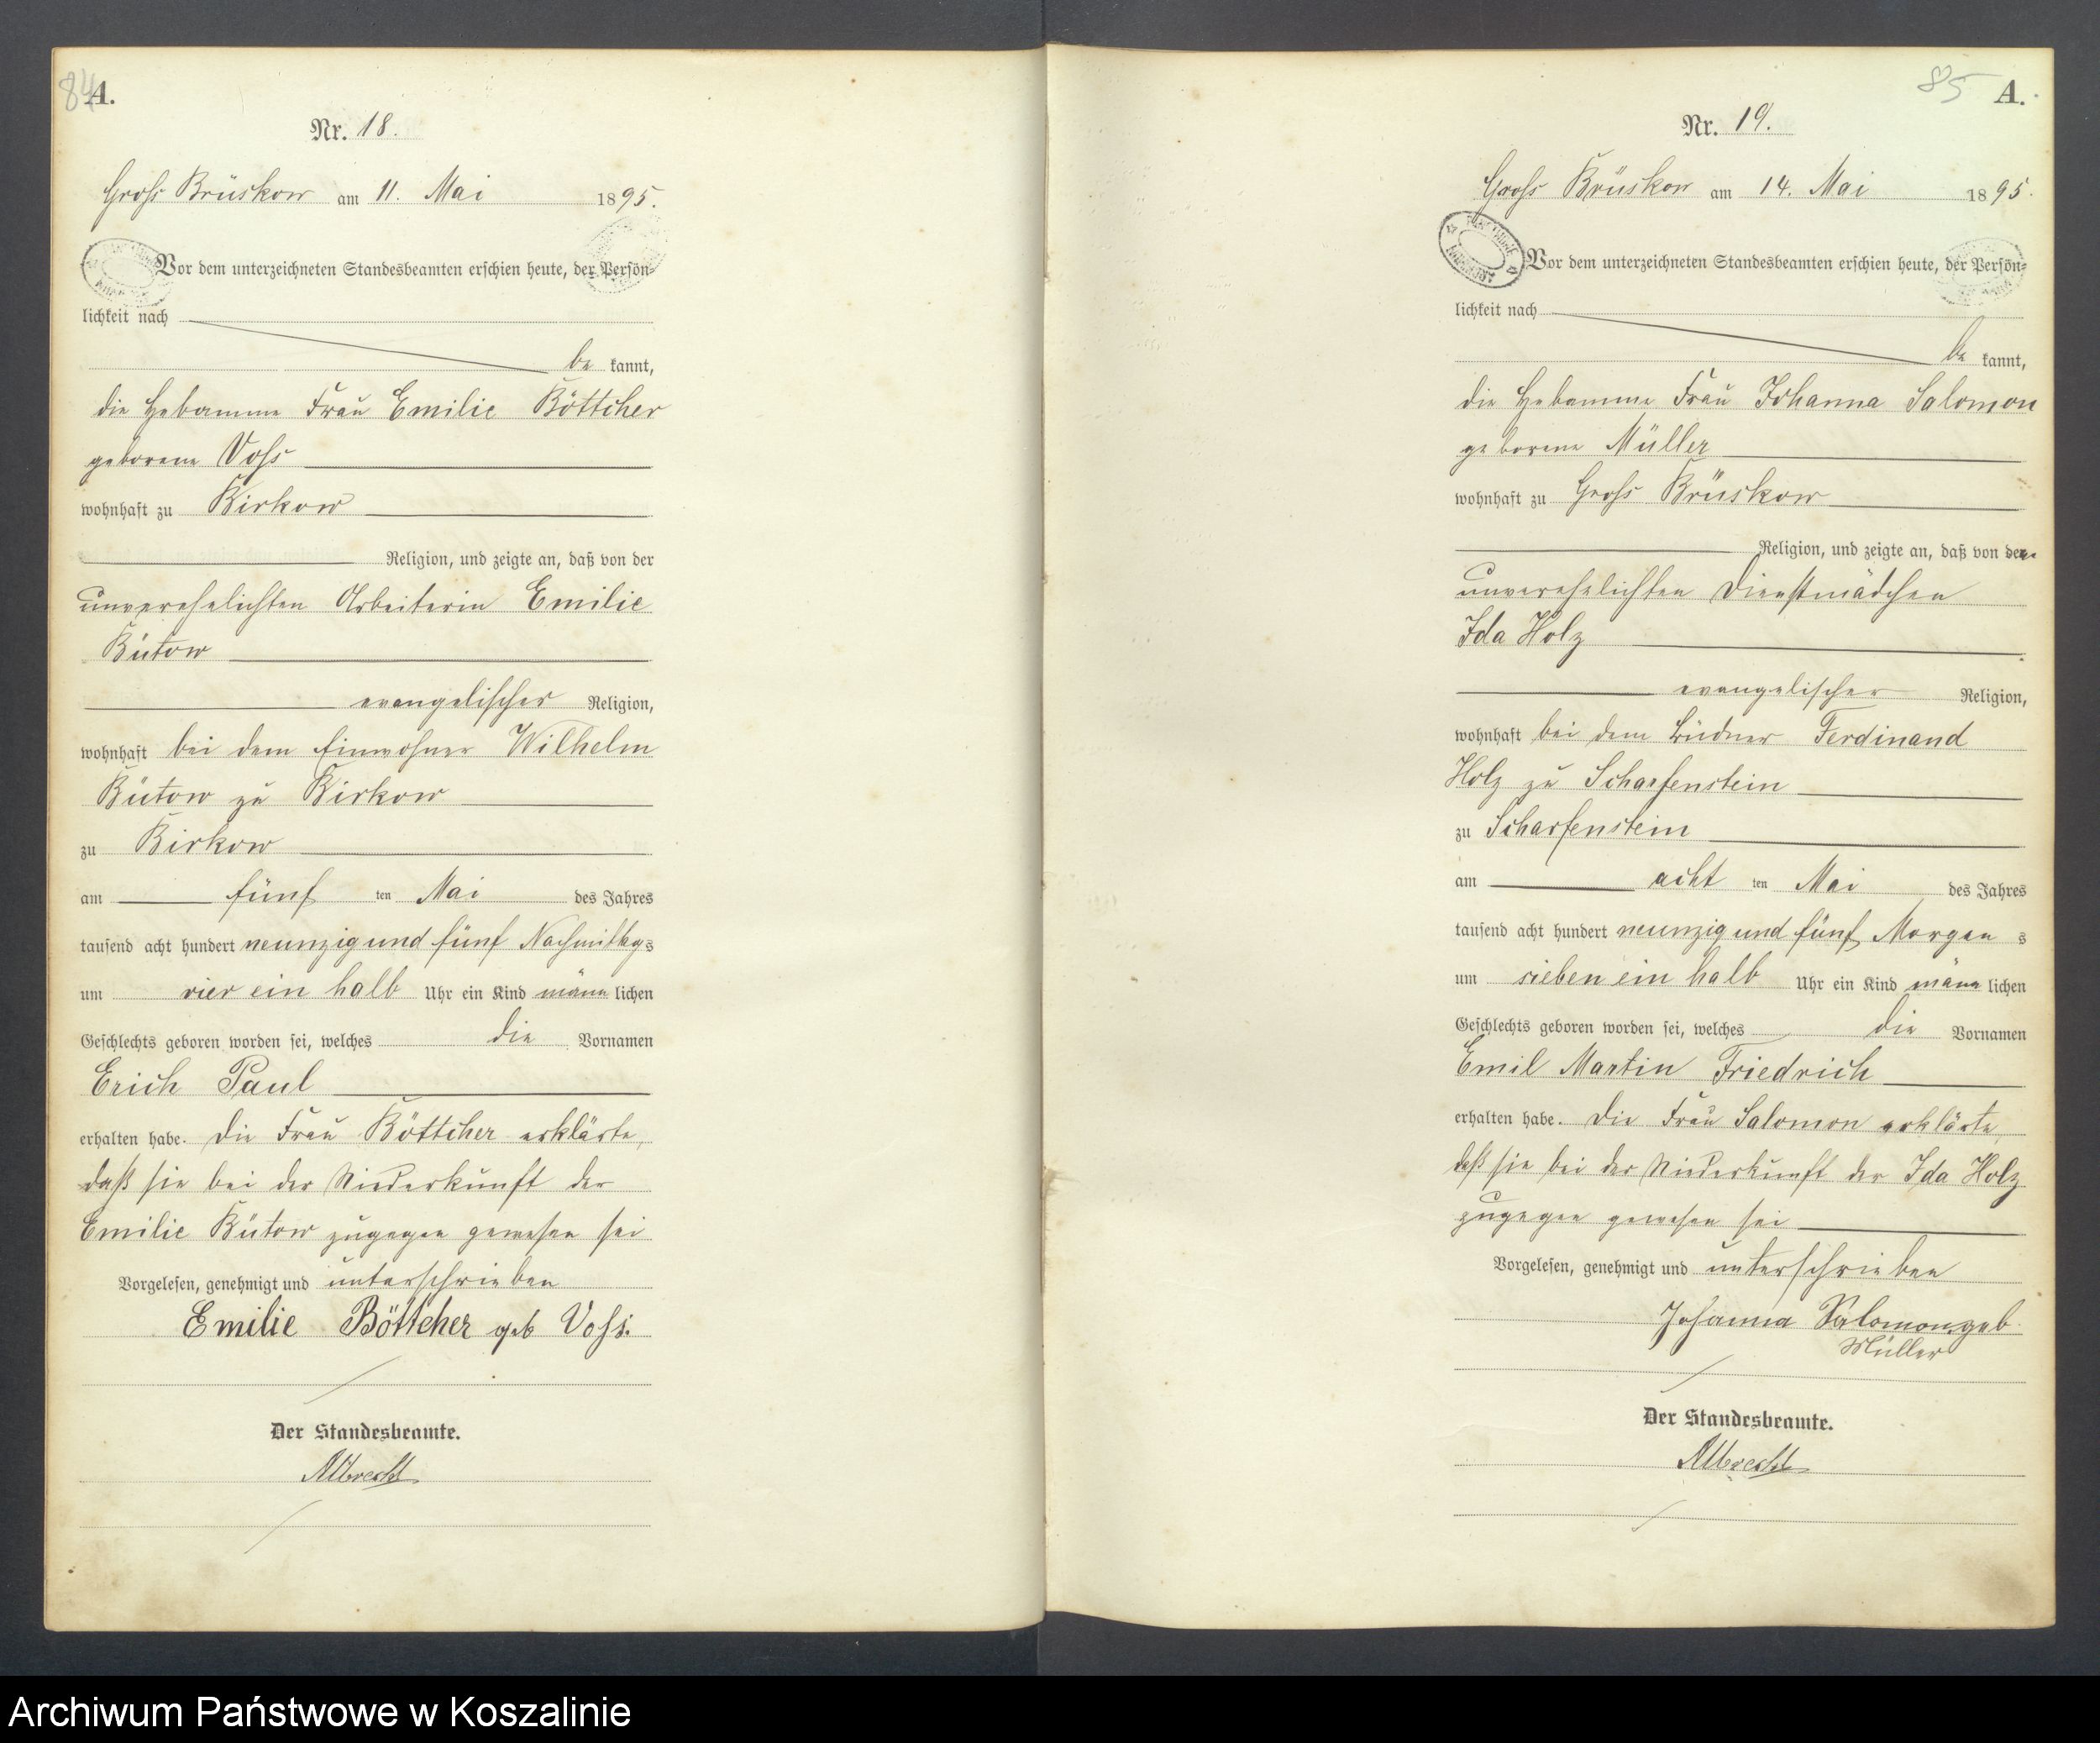 84
A.
Nr. 18.
Groß Brüskow am 11. Mai 1895.
Vor dem unterzeichneten Standesbeamten erschien heute, der Persön-
lichkeit nach
be kannt,
die Hebamme Frau Emilie Böttcher
geborene Voß
wohnhaft zu Birkow
Religion, und zeigte an, daß von der
unverehelichten Arbeiterin Emilie
Bütow
evangelischer Religion,
wohnhaft bei dem Einwohner Wilhelm
Bütow zu Birkow
zu Birkow
am fünf ten Mai des Jahres
tausend acht hundert neunzig und fünf Nachmittags
um vier ein halb Uhr ein Kind männ lichen
Geschlechts geboren worden sei, welches die Vornamen
Erich Paul
erhalten habe. Die Frau Böttcher erklärte,
daß sie bei der Niederkunft der
Emilie Bütow zugegen gewesen sei
Vorgelesen, genehmigt und unterschrieben
Emilie Böttcher geb Voß.
Der Standesbeamte.
Albrecht
85
A.
Nr. 19.
Groß Brüskow am 14. Mai 1895.
Vor dem unterzeichneten Standesbeamten erschien heute, der Persön-
lichkeit nach
be kannt,
die Hebamme Frau Johanna Salomon
geborene Müller
wohnhaft zu Groß Brüskow
Religion, und zeigte an, daß von dem
unverehelichten Dienstmädchen
Ida Holz
evangelischer Religion,
wohnhaft bei dem Büdner Ferdinand
Holz zu Scharfenstein
zu Scharfenstein
am acht ten Mai des Jahres
tausend acht hundert neunzig und fünf Morgen s
um sieben ein halb Uhr ein Kind männ lichen
Geschlechts geboren worden sei, welches die Vornamen
Emil Martin Friedrich
erhalten habe. Die Frau Salomon erklärte,
daß sie bei der Niederkunft der Ida Holz
zugegen gewesen sei
Vorgelesen, genehmigt und unterschrieben
Johanna Salomon geb.
Müller
Der Standesbeamte.
Albrecht
Archiwum Państwowe w Koszalinie